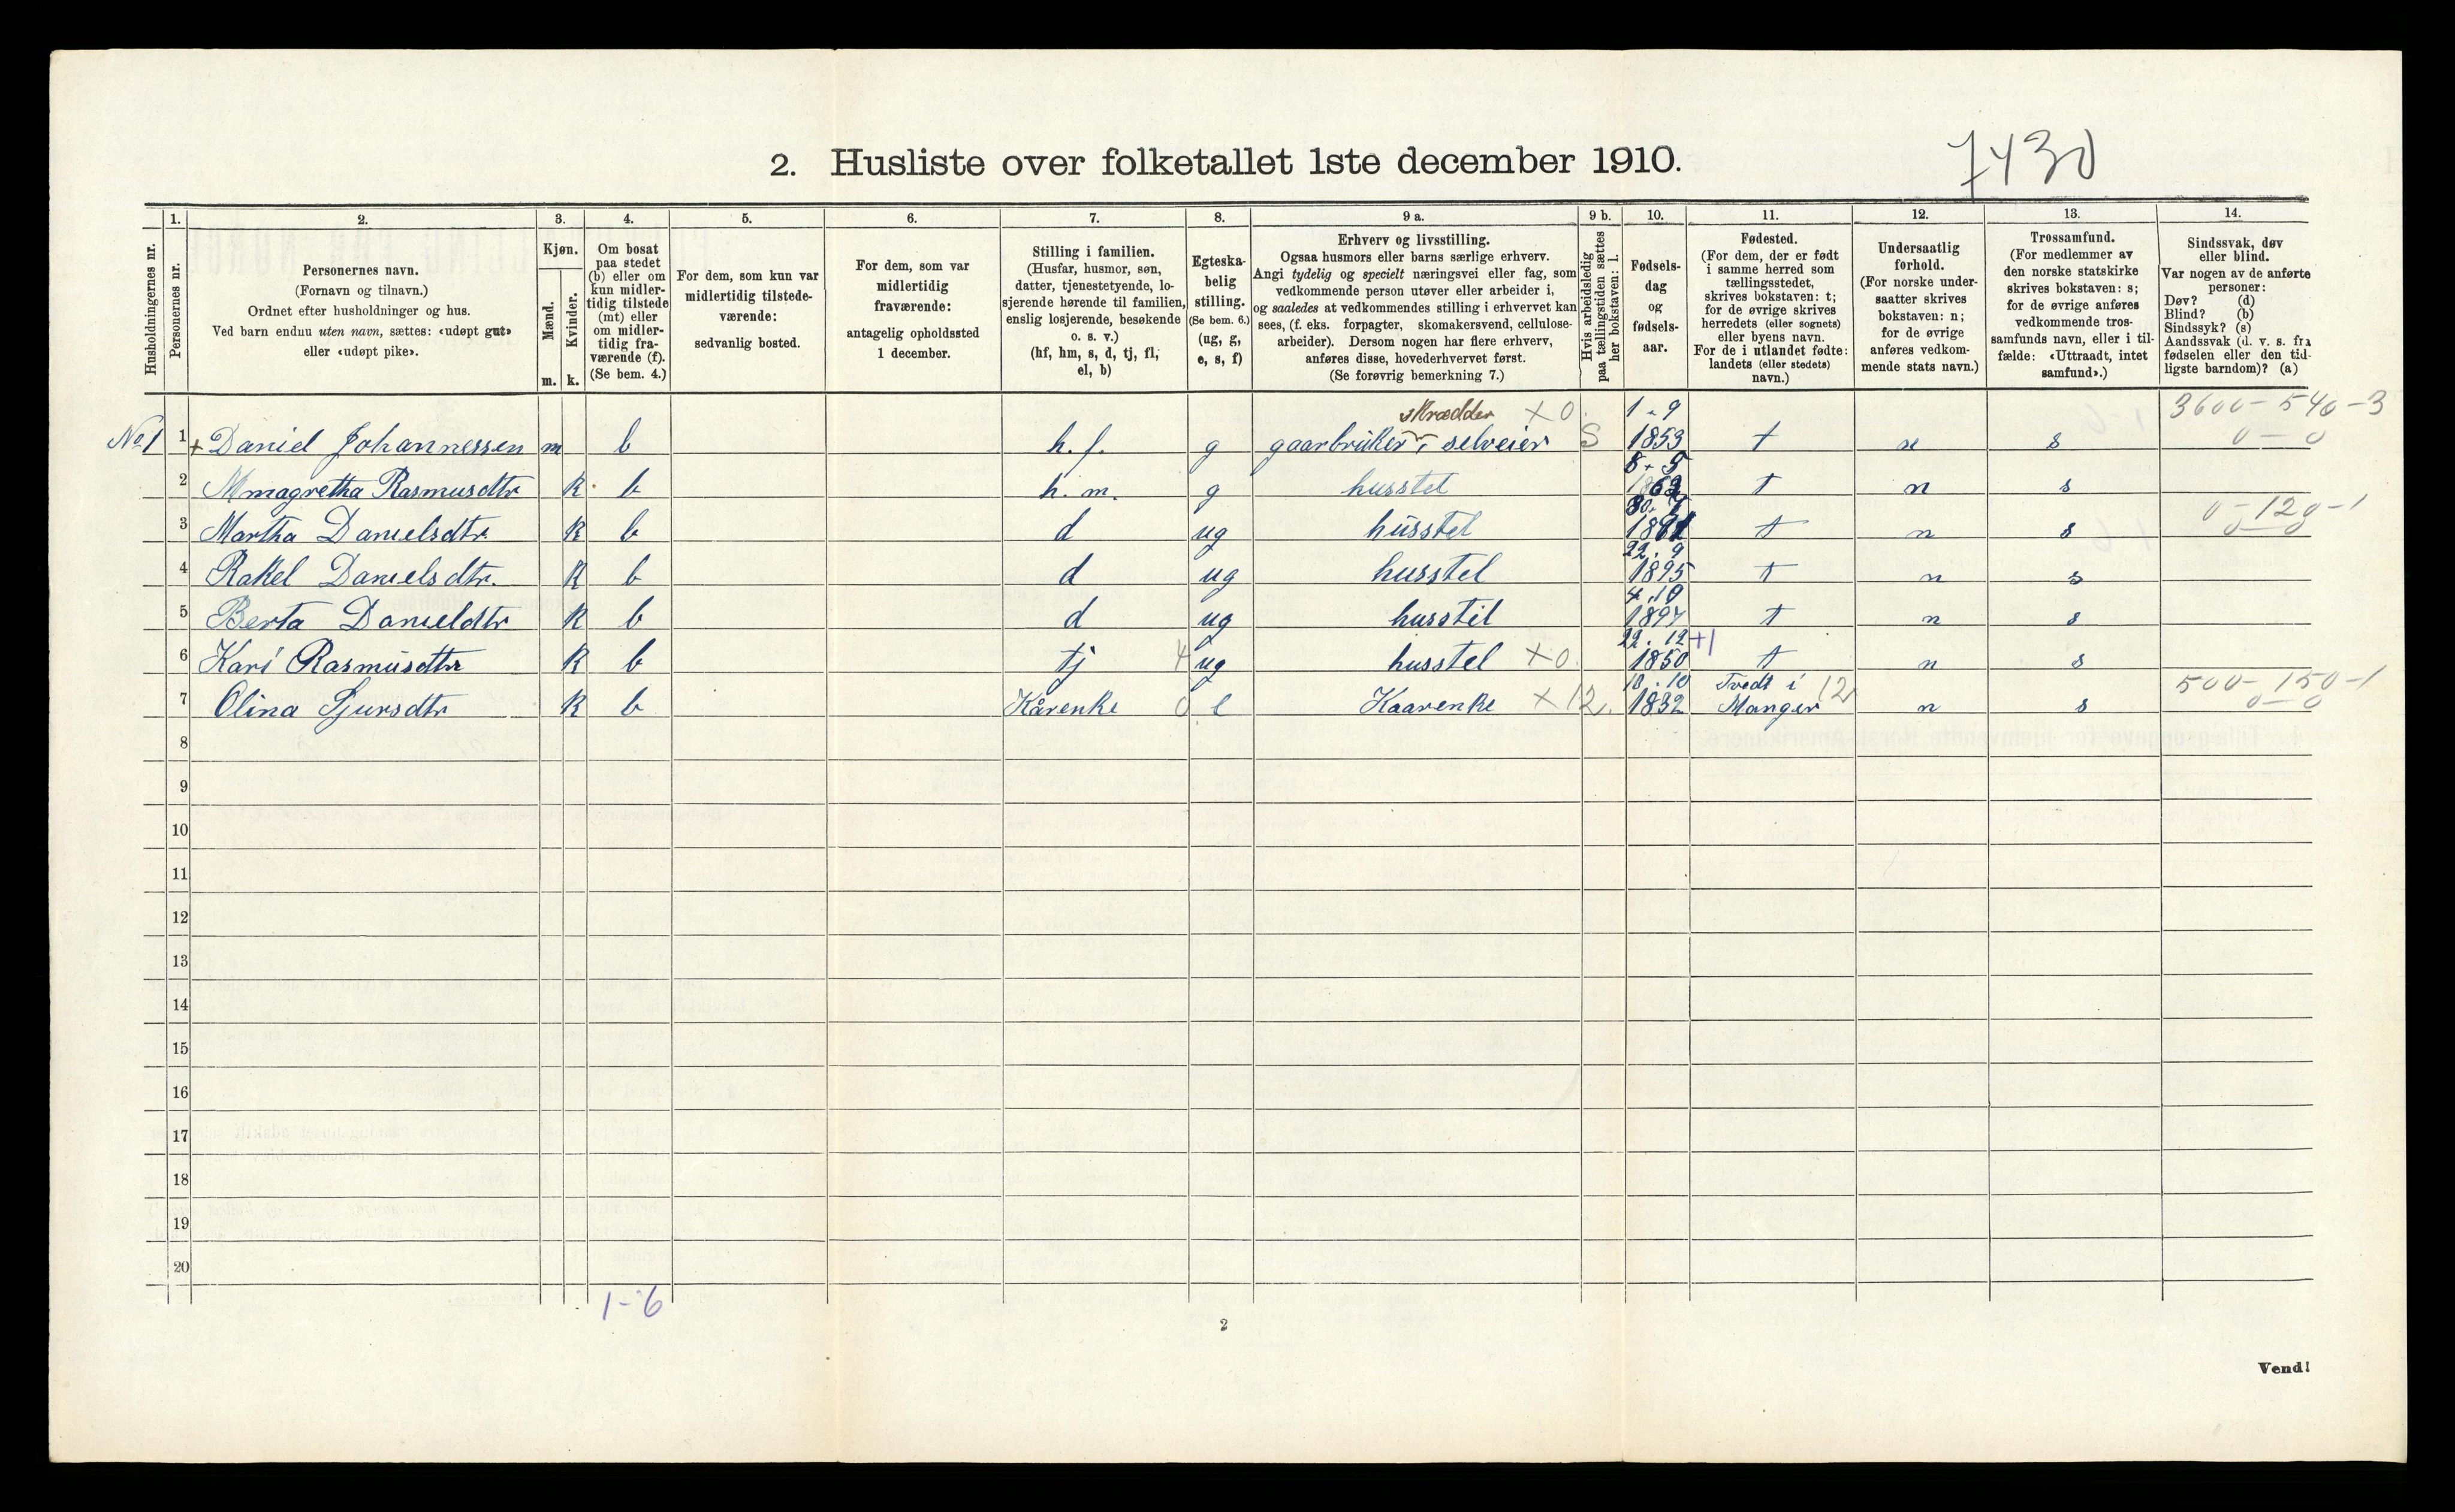 2. Husliste over folketallet 1ste december 1910.
7430
Husholdningernes nr.
1. Personernes nr.
2. Personernes navn. (Fornavn og tilnavn.) Ordnet efter husholdninger og hus. Ved barn endnu uten navn, sættes: «udøpt gut» eller «udøpt pike».
3. Kjøn. Mænd. m. Kvinder. k.
4. Om bosat paa stedet (b) eller om kun midlertidig tilstede (mt) eller om midlertidig fraværende (f). (Se bem. 4.)
5. For dem, som kun var midlertidig tilstedeværende: sedvanlig bosted.
6. For dem, som var midlertidig fraværende: antagelig opholdssted 1 december.
7. Stilling i familien. (Husfar, husmor, søn, datter, tjenestetyende, losjerende hørende til familien, enslig losjerende, besøkende o. s. v.) (hf, hm, s, d, tj, fl, el, b)
8. Egteskabelig stilling. (Se bem. 6.) (ug, g, e, s, f)
9 a. Erhverv og livsstilling. Ogsaa husmors eller barns særlige erhverv. Angi tydelig og specielt næringsvei eller fag, som vedkommende person utøver eller arbeider i, og saaledes at vedkommendes stilling i erhvervet kan sees, (f. eks. forpagter, skomakersvend, cellulosearbeider). Dersom nogen har flere erhverv, anføres disse, hovederhvervet først. (Se forøvrig bemerkning 7.)
9 b. Hvis arbeidsledig paa tællingstiden sættes her bokstaven: l.
10. Fødselsdag og fødselsaar.
11. Fødested. (For dem, der er født i samme herred som tællingsstedet, skrives bokstaven: t; for de øvrige skrives herredets (eller sognets) eller byens navn. For de i utlandet fødte: landets (eller stedets) navn.)
12. Undersaatlig forhold. (For norske undersaatter skrives bokstaven: n; for de øvrige anføres vedkommende stats navn.)
13. Trossamfund. (For medlemmer av den norske statskirke skrives bokstaven: s; for de øvrige anføres vedkommende trossamfunds navn, eller i tilfælde: «Uttraadt, intet samfund».)
14. Sindssvak, døv eller blind. Var nogen av de anførte personer: Døv? (d) Blind? (b) Sindssyk? (s) Aandssvak (d. v. s. fra fødselen eller den tidligste barndom)? (a)
skrædder X 0 1 - 9 3600 - 540 - 3
No 1 1 + Daniel Johannessen m b h. f. g gaarbruker, selveier S 1853 t n s 0 - 0
8 - 5
2 Mmagretha Rasmusdtr K b h. m. g husstel t n s
0 - 120 - 1
3 Martha Danielsdtr K b d ug husstel t n s 0 - 0
22. 9
4 Rakel Danielsdtr. K b d ug husstel 1895 t n s
4. 10
5 Berta Danieldtr K b d ug husstil 1897 t n s
22. 12 +1
6 Kari Rasmusdtr K b tj 4 ug husstel X 0 1850 t n s
10. 10 Tvedt i 12 500 - 150 - 1
7 Olina Sjursdtr K b Kårenke 0 e Kaarenke X 12. 1832 Manger n s 0 - 0
8
9
10
11
12
13
14
15
16
17
18
19
20
1 - 6
2
Vend!